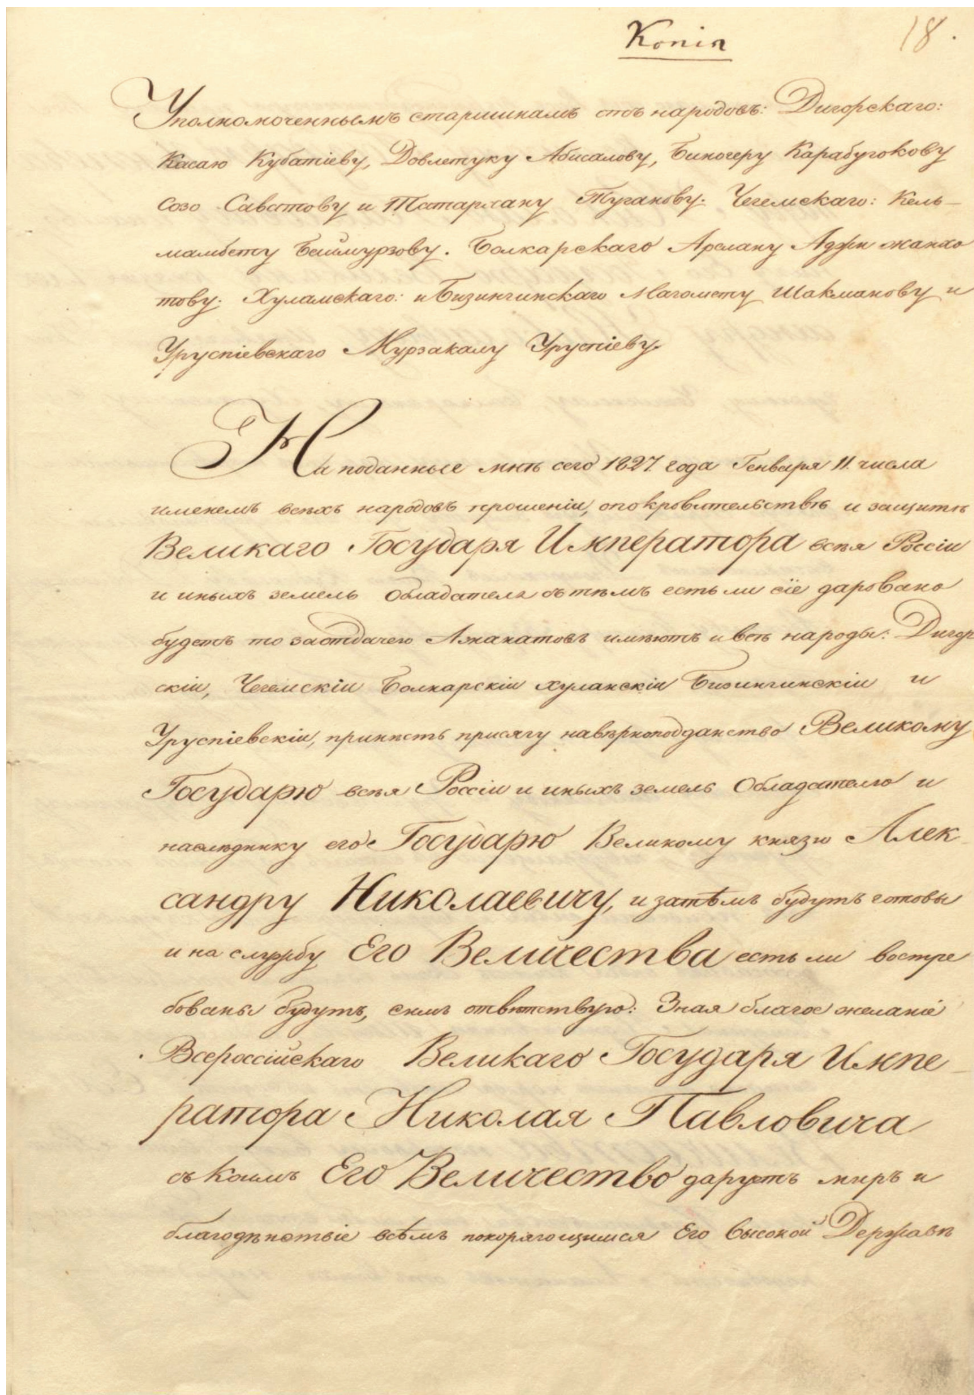 Копія
18.
Уполномоченнымъ старшинамъ отъ народовъ: Дигорскаго:
Касаю Кубатіеву, Довлетуку Абисалову, Биногеру Карабугокову
Созо Саватову и Татархану Туганову. Чегемскаго: Кель-
мамбету Беймурзову. Болкарскаго Арслану Аджи жанхо
тову. Хуламскаго: и Бизингинскаго Магомету Шакманову и
Уруспіевскаго Мурзакалу Уруспіеву.
На поданные мнѣ сего 1827 года Генваря 11. числа
именемъ всѣхъ народовъ прошеніи, опокровительствѣ и защитѣ
Великаго Государя Императора всея Россіи
и иныхъ земель Обладателя сътѣмъ естьли сіе даровано
будетъ то заотдачею Аманатовъ имѣютъ и всѣ народы: Дигор
скіи, Чегемскіи Болкарскіи хуламскіи Бизингинскіи и
Уруспіевскіи, принять присягу навѣрноподданство Великому
Государю всея Россіи и иныхъ земель Обладателю и
наслѣднику его Государю Великому князю Алек-
сандру Николаевичу, и затѣмъ будутъ готовы
и на службу Его Величества естьли востре
бованы будутъ, симъ отвѣтствую: Зная благое желаніе
Всероссійскаго Великаго Государя Импе-
ратора Николая Павловича
съ коимъ Его Величество даруетъ миръ и
благоденствіе всѣмъ покоряющимся Его высокой Державѣ